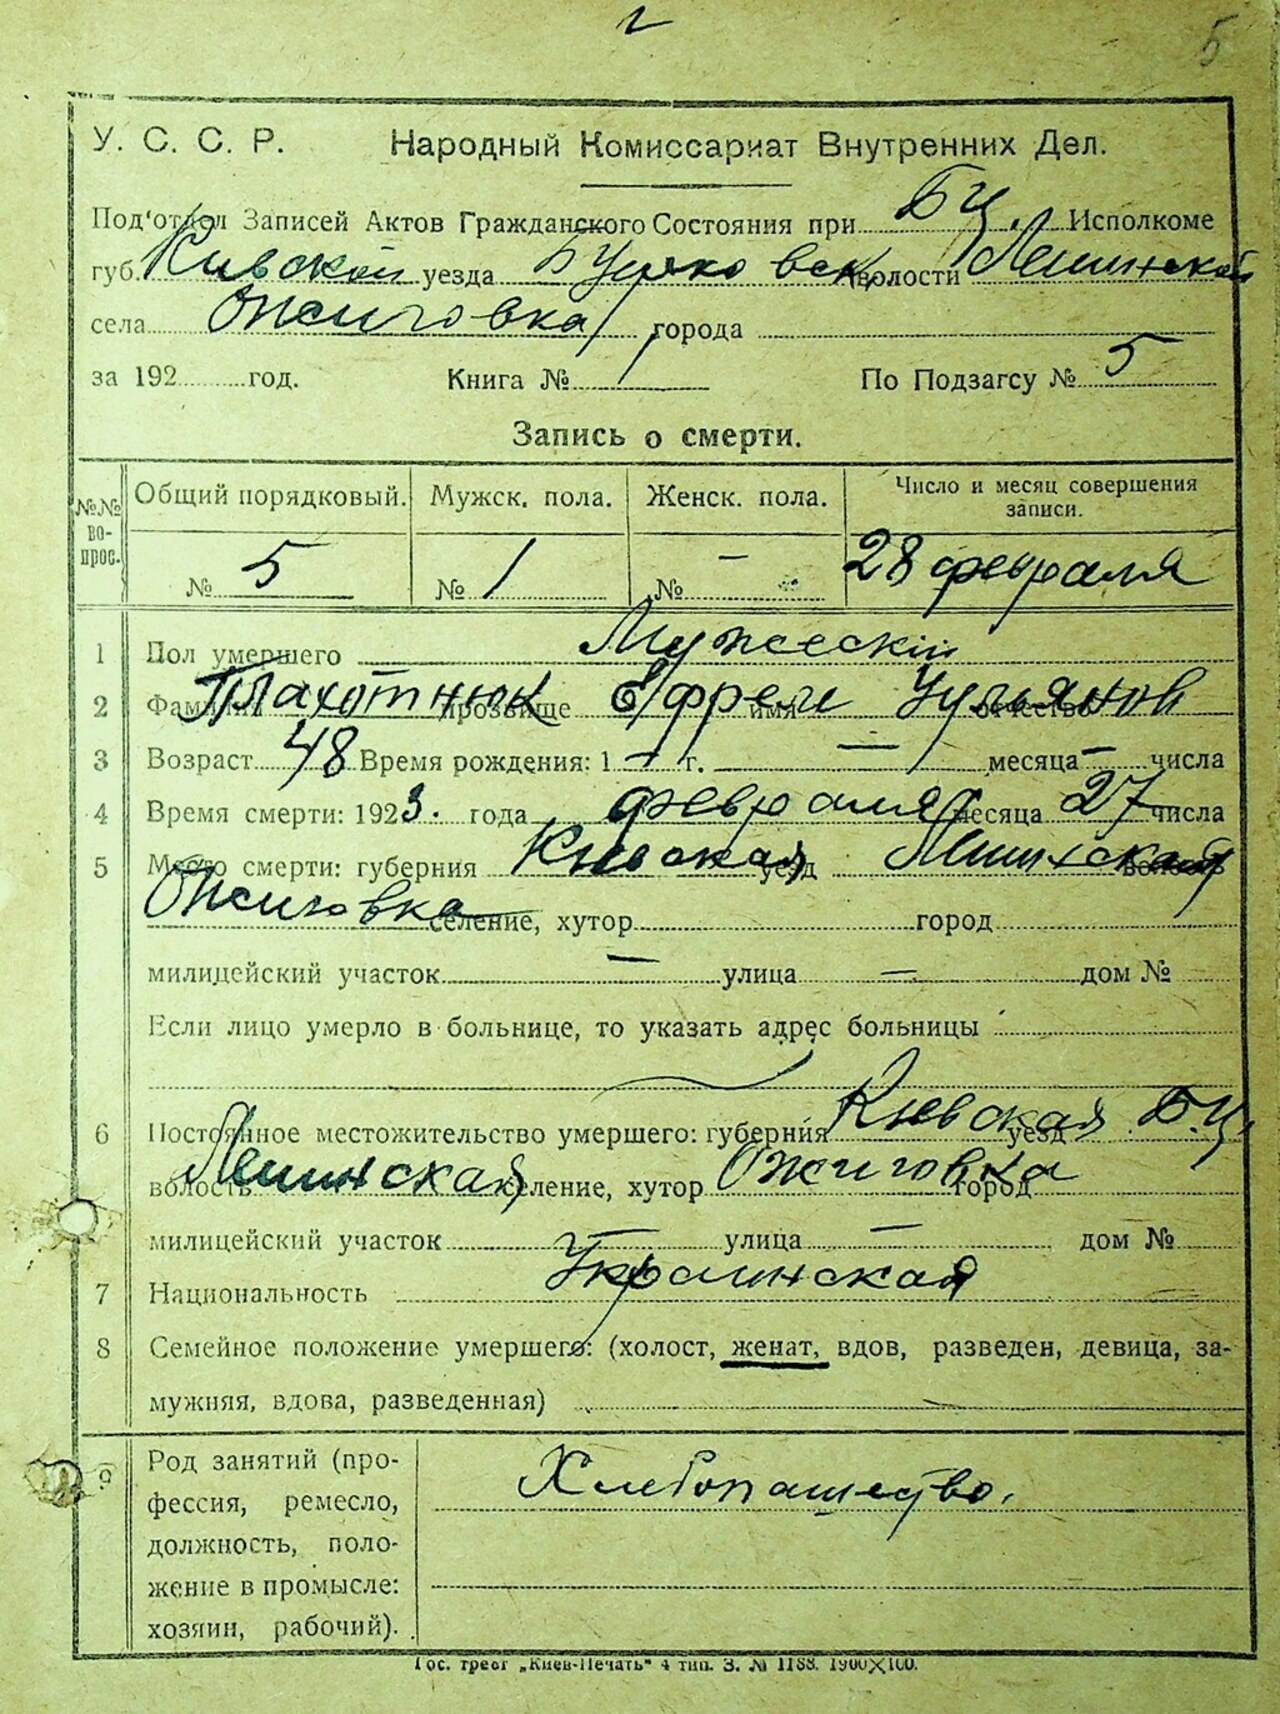 г
5
У. С. С. Р. Народный Комиссариат Внутренних Дел.
Под'отдел Записей Актов Гражданского Состояния при БЦ. Исполкоме
губ. Кивской уезда волости
села Ожиговка города
за 192 год. Книга № 1 По Подзагсу № 5
Запись о смерти.
№№ во-прос. Общий порядковый. Мужск. пола. Женск. пола. Число и месяц совершения записи.
№ 5 № 1 № — 28 февраля
1 Пол умершего Мужеский
2 Фамилия прозвище имя отчество Плахотнюк Ефрем Ульянов
3 Возраст 48 Время рождения: 1 — г. — месяца — числа
4 Время смерти: 1923. года февраля месяца 27 числа
5 Место смерти: губерния Киевская уезд волость
Ожиговка селение, хутор город
милицейский участок — улица — дом №
Если лицо умерло в больнице, то указать адрес больницы
6 Постоянное местожительство умершего: губерния Киевская уезд Б.Ц.
волость селение, хутор Ожиговка город
милицейский участок — улица — дом №
7 Национальность Украинская
8 Семейное положение умершего: (холост, женат, вдов, разведен, девица, за-
мужняя, вдова, разведенная)
9 Род занятий (про-
фессия, ремесло,
должность, поло-
жение в промысле:
хозяин, рабочий).
Хлебопашество.
Гос. трест „Киев-Печать" 4 тип. З. № 1188. 1900×100.